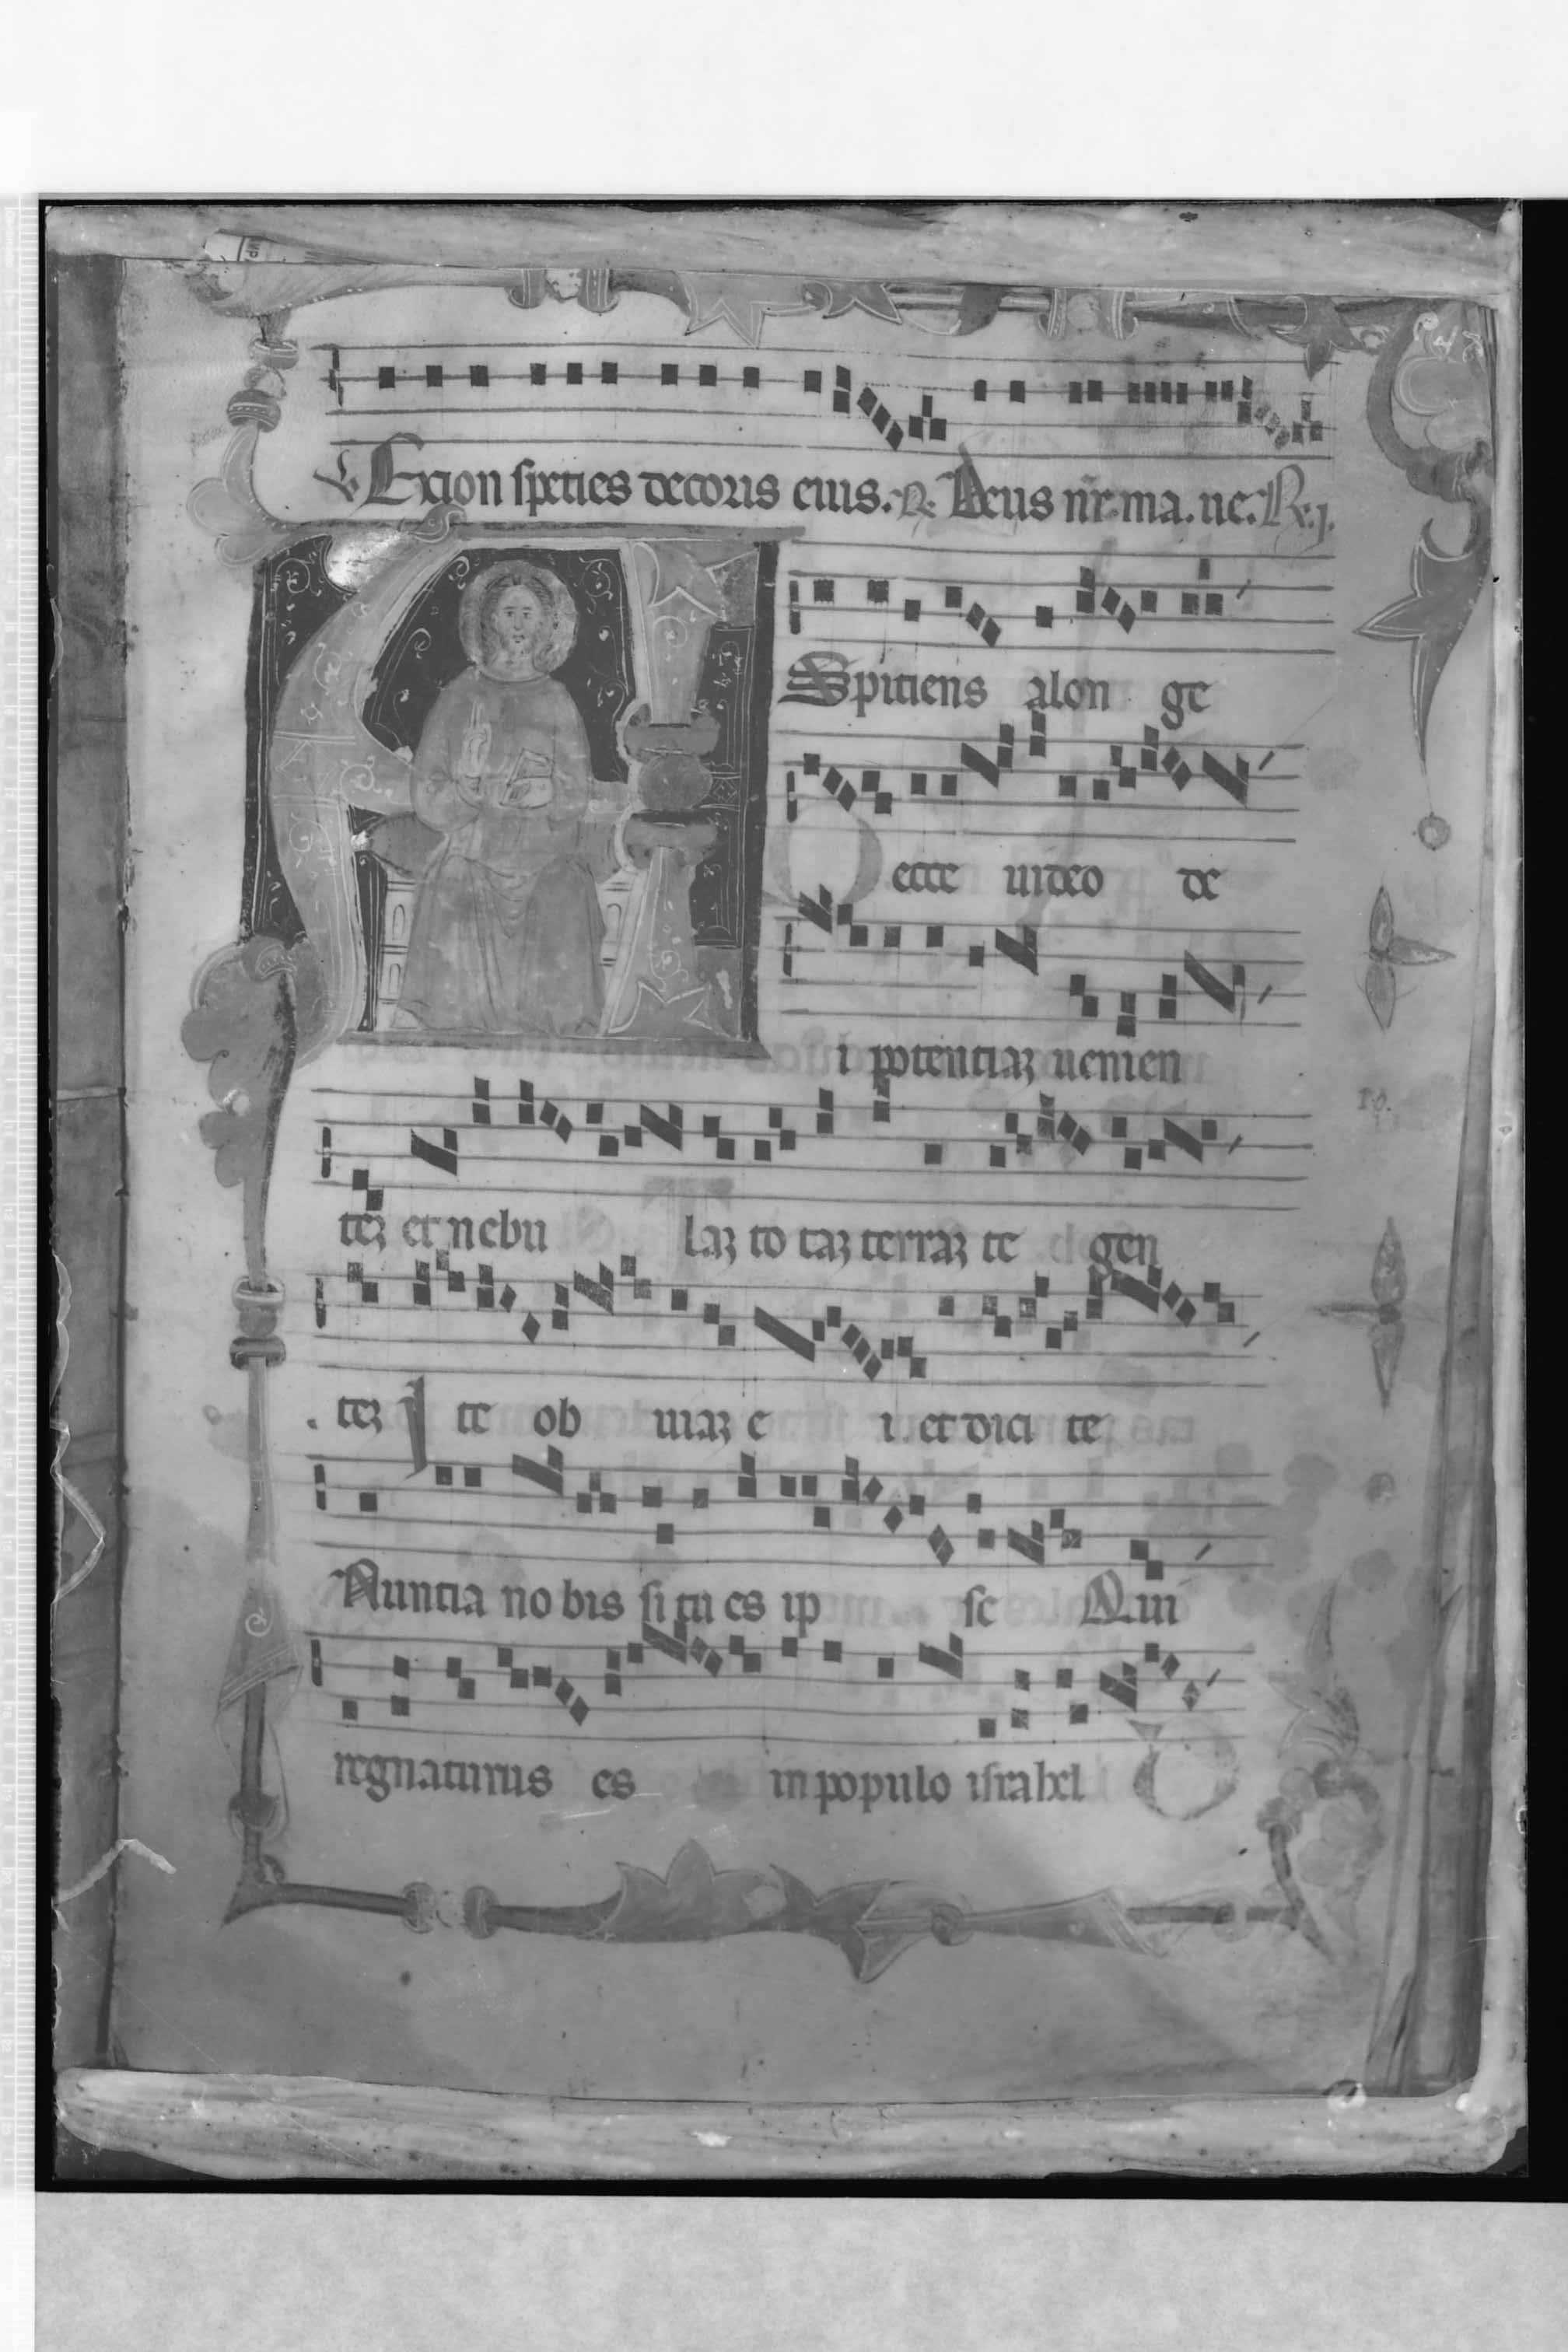 ℣. Exion speties decoris eius. ℟. Deus nr̄. ma. ne. ℟. j.
ASpitiens alon ge
ecce uideo de
i potentiaꝫ uenien
teꝫ et nebu laꝫ to taꝫ terraꝫ te gen
teꝫ I te ob uiaꝫ e i. et dici te
Nuntia no bis si tu es ip se Qui
regnaturus es in populo israhel